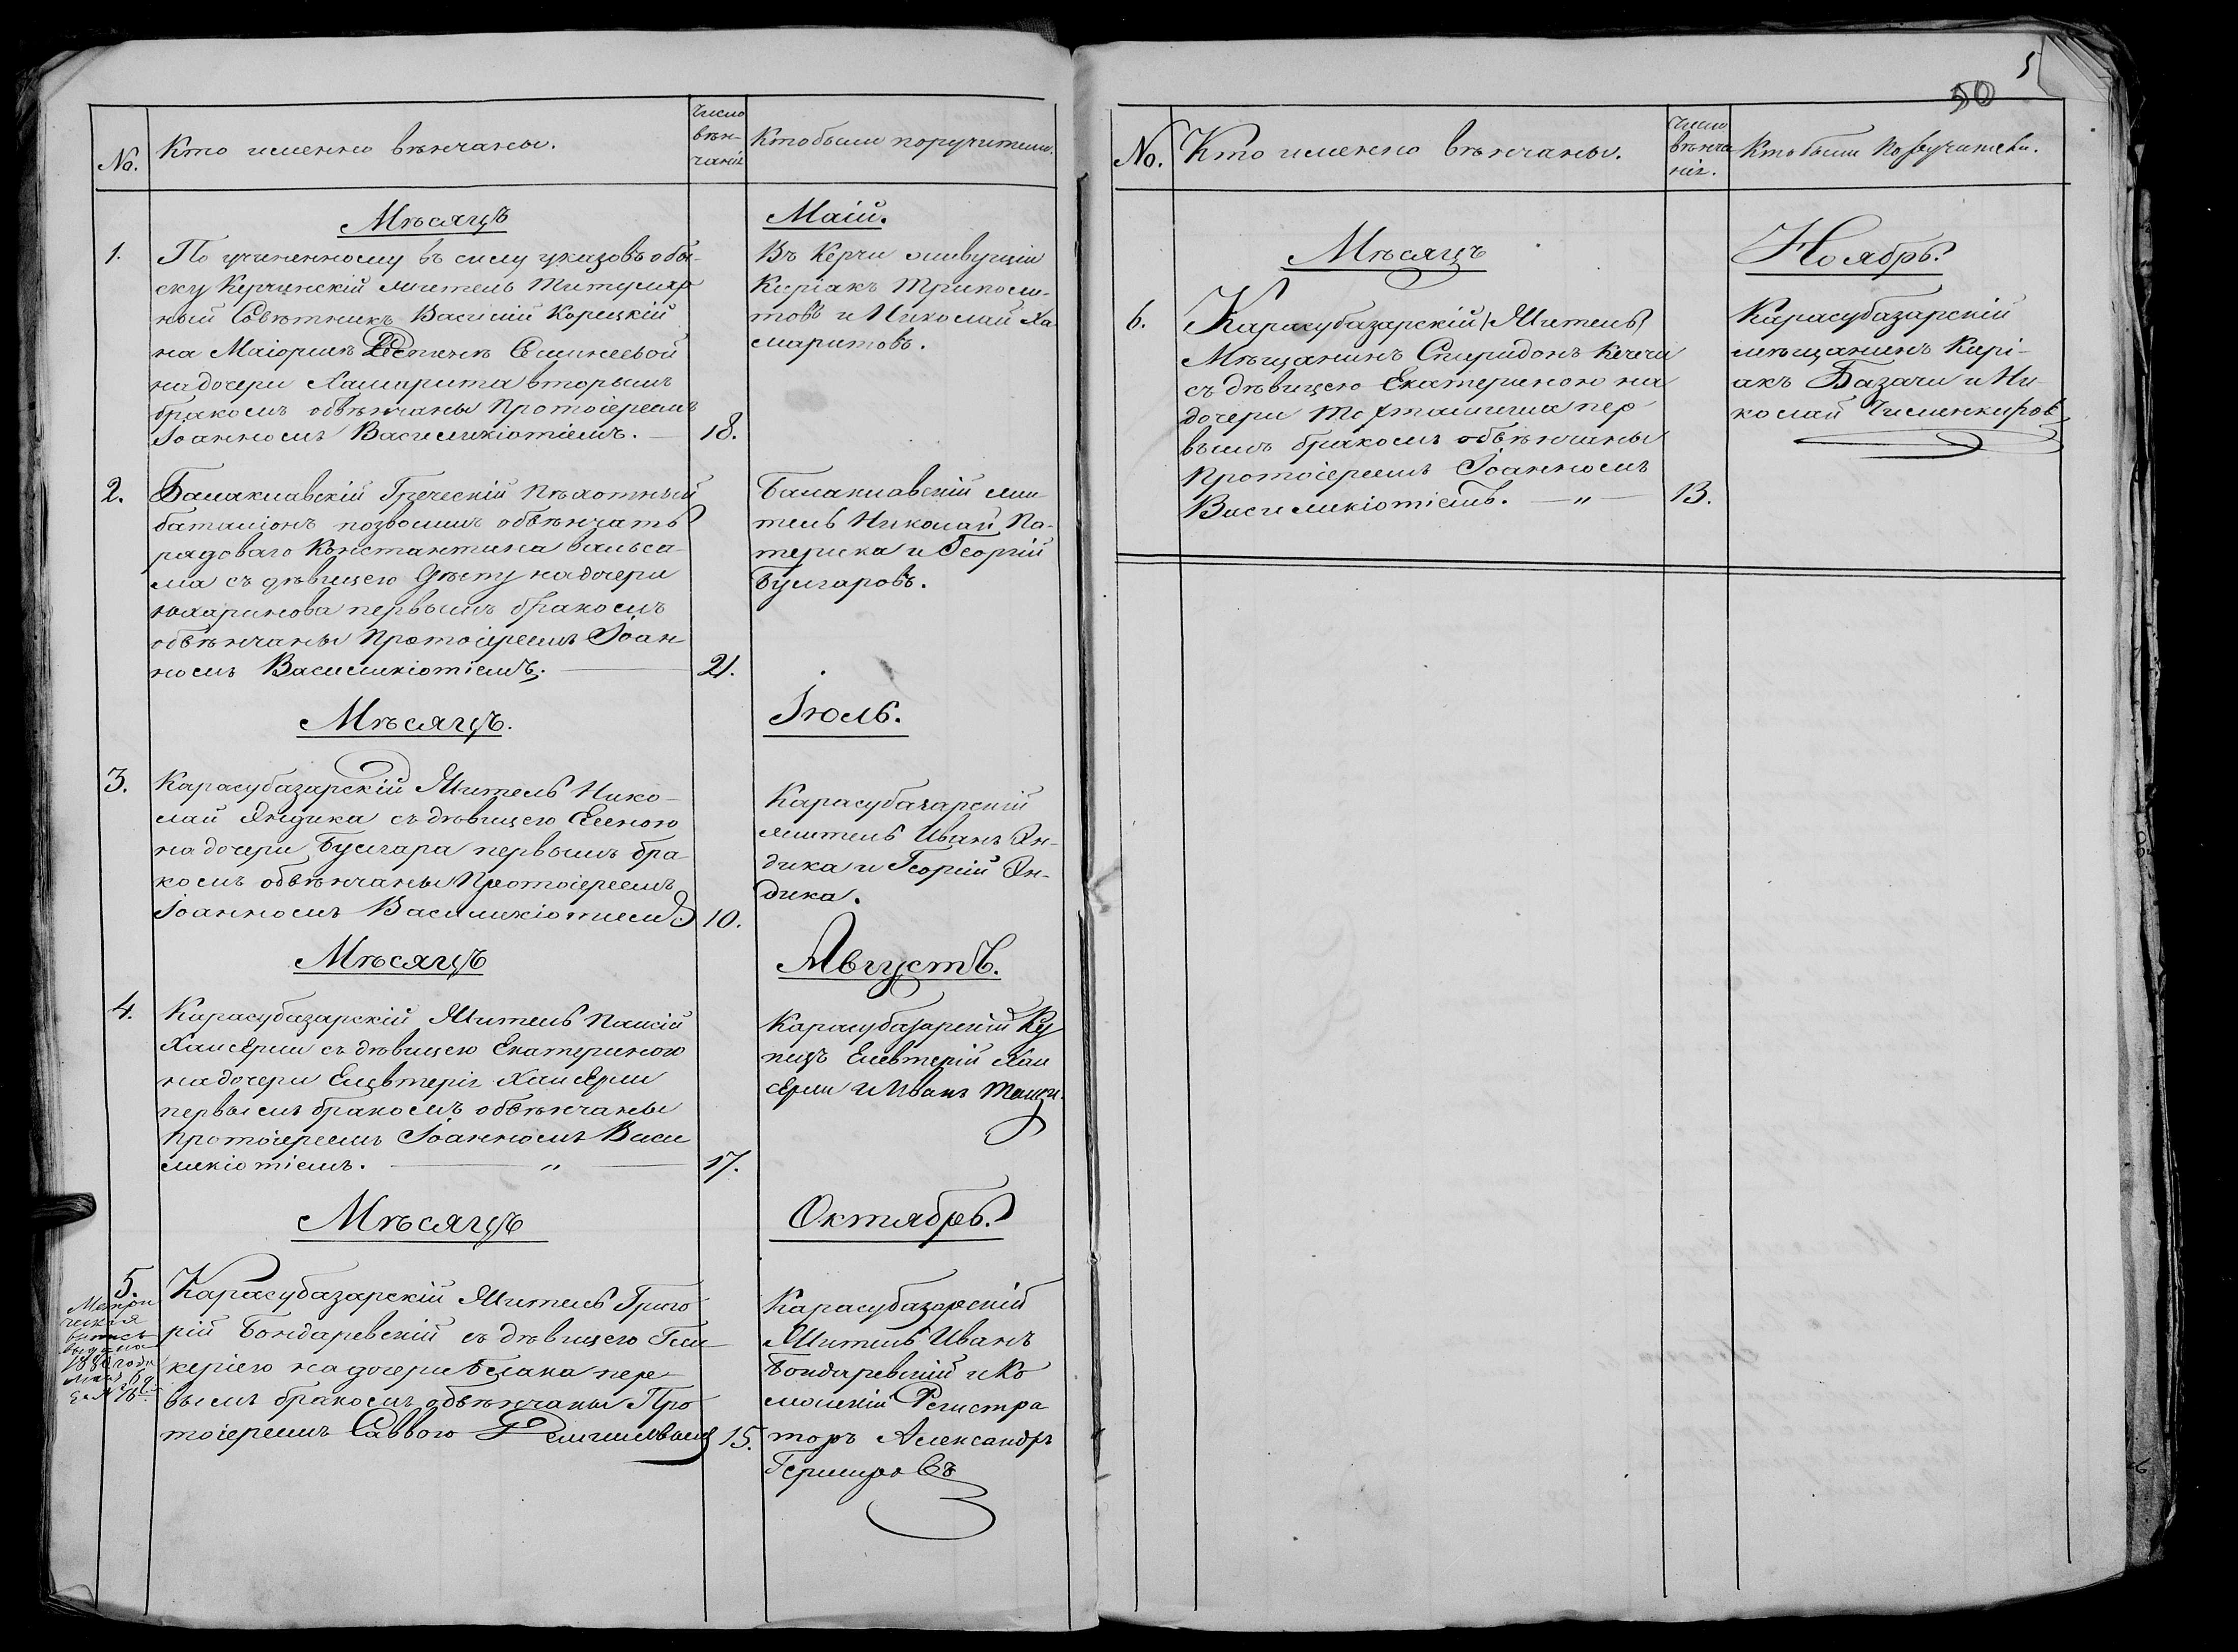 No.
Кто именно вѣнчаны.
Число
вѣн-
чанія
Кто были поручители.
Мѣсяцъ
Маій.
1.
По учиненному въ силу указовъ обы-
ску Керчинскій житель Титуляр
ный Совѣтникъ Василій Корецкій
на Маіоршѣ Деспинѣ Есминеевой
на дочери Хамарита вторымъ
бракомъ обвѣнчаны Протоіереемъ
Іоанномъ Василикіотіемъ. —
18.
Въ Керчи живущіи
Киріакъ Триполи-
товъ и Николай Ха-
маритовъ.
2.
Балаклавскій Греческій Пѣхотный
баталіонъ позволилъ обвѣнчать
рядоваго Константина Вальса-
ма съ дѣвицею на дочери
Юхаринова первымъ бракомъ
обвѣнчаны Протоіереемъ Іоан
номъ Василикіотіемъ. —
21.
Балаклавскій жи-
тель Николай Па-
терика и Георгій
Булгаровъ.
Мѣсяцъ.
Іюль.
3.
Карасубазарскій Житель Нико-
лай Яндика съ дѣвицею Еленою
на дочери Булгара первымъ бра-
комъ обвѣнчаны Протоіереемъ
Іоанномъ Василикіотиемъ
10.
Карасубазарскій
житель Иванъ Ян-
дика и Георгій Ян-
дика.
Мѣсяцъ
Августъ.
4.
Карасубазарскій Житель Паисій
Хансерли съ дѣвицею Екатериною
на дочери Елевтерія Хансерли
первымъ бракомъ обвѣнчаны
Протоіереемъ Іоанномъ Васи
ликіотіемъ. — " —
17.
Карасубазарскій Ку
пецъ Елевтерій Хан
серли и Иванъ
Мѣсяцъ
Октябрь.
5.
Метри
ческая
выпись
выдана
188 года
Карасубазарскій Житель Григо
рій Бондаревскій съ дѣвицею Гли
керіею на дочери Бѣлака пер-
вымъ бракомъ обвѣнчаны Про
тоіереемъ Саввою
15.
Карасубазарскій
Житель Иванъ
Бондаревскій и Ко
лежскій Регистра
торъ Александръ
50
No.
Кто именно вѣнчаны.
Число
вѣнча
нія.
Кто были Поручители.
Мѣсяцъ
Ноябрь.
6.
Карасубазарскій Житель
Мѣщанинъ Спиридонъ Кечечи
съ дѣвицею Екатериною на
дочери Тохтамиша пер
вымъ бракомъ обвѣнчаны
Протоіереемъ Іоанномъ
Василикіотіемъ. — " —
13.
Карасубазарскій
мѣщанинъ Кирі-
акъ Базачи и Ни
колай Чименкировъ